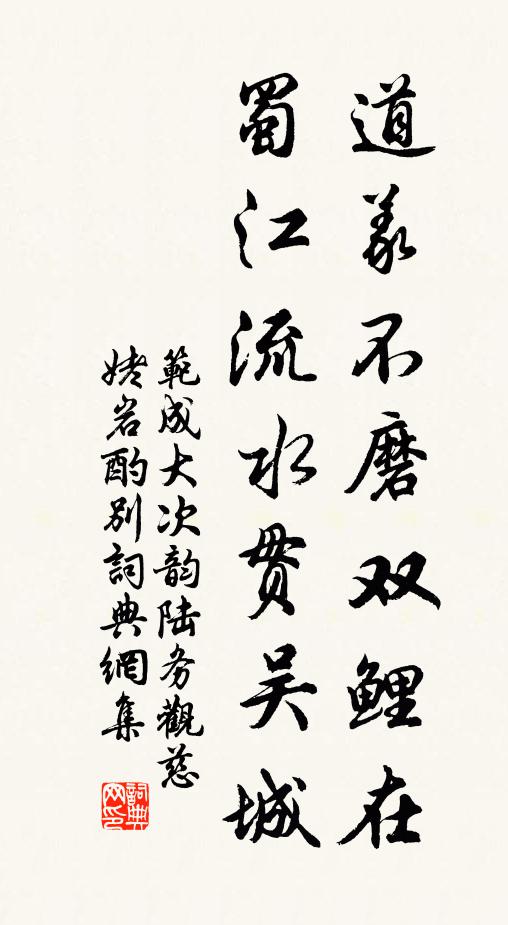 道义不磨双鲤在
蜀江流水贯吴城
範成大次韵陆务觀慈
姥岩酌别詞典網集
詞典网印